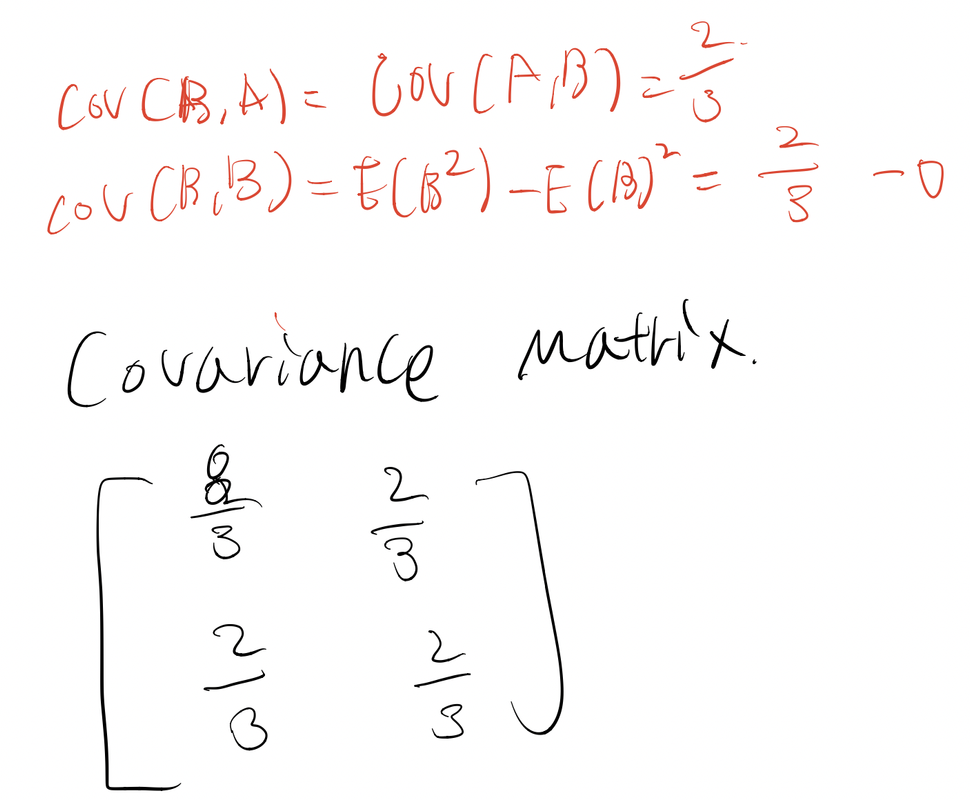 Cov(B,A) = Cov(A,B) = 2/3
Cov(B,B) = E(B²) - E(B)² = 2/3 - 0
Covariance matrix.
[ 8/3 2/3
2/3 2/3 ]